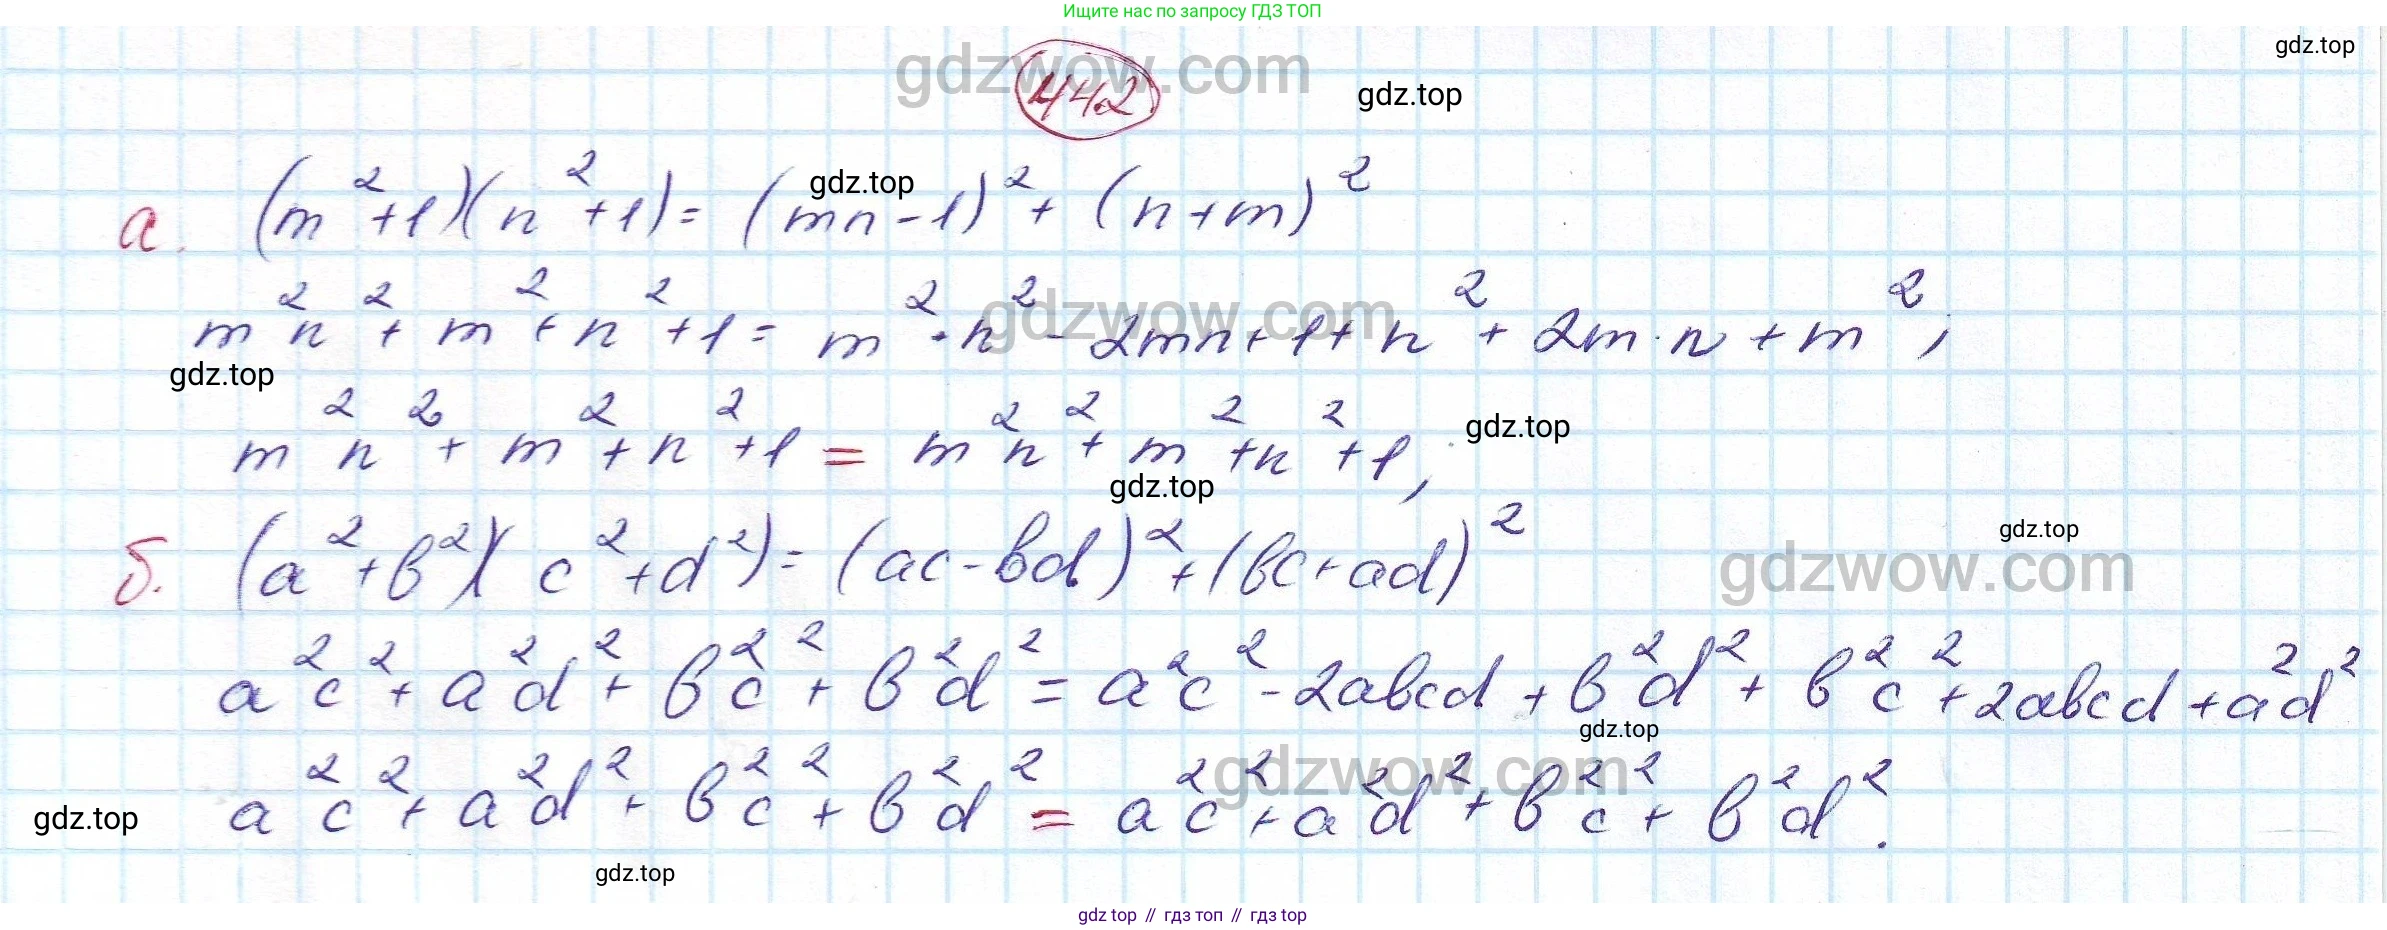 Ищите нас по запросу ГДЗ ТОП
gdz.top
gdzwow.com
442
gdz.top
а. (m²+1)(n²+1)= (mn-1)²+(n+m)²
gdz.top
m²n²+m²+n²+1= m²·n²-2mn+1+n²+2m·n+m²;
gdzwow.com
gdz.top
m²n²+m²+n²+1=m²n²+m²+n²+1,
gdz.top
gdz.top
б. (a²+b²)(c²+d²)=(ac-bd)²+(bc+ad)²
gdz.top
gdzwow.com
a²c²+a²d²+b²c²+b²d²=a²c²-2abcd+b²d²+b²c²+2abcd+a²d²
gdz.top
gdzwow.com
a²c²+a²d²+b²c²+b²d²=a²c²+a²d²+b²c²+b²d².
gdz.top
gdz.top
gdz top // гдз топ // gdz top